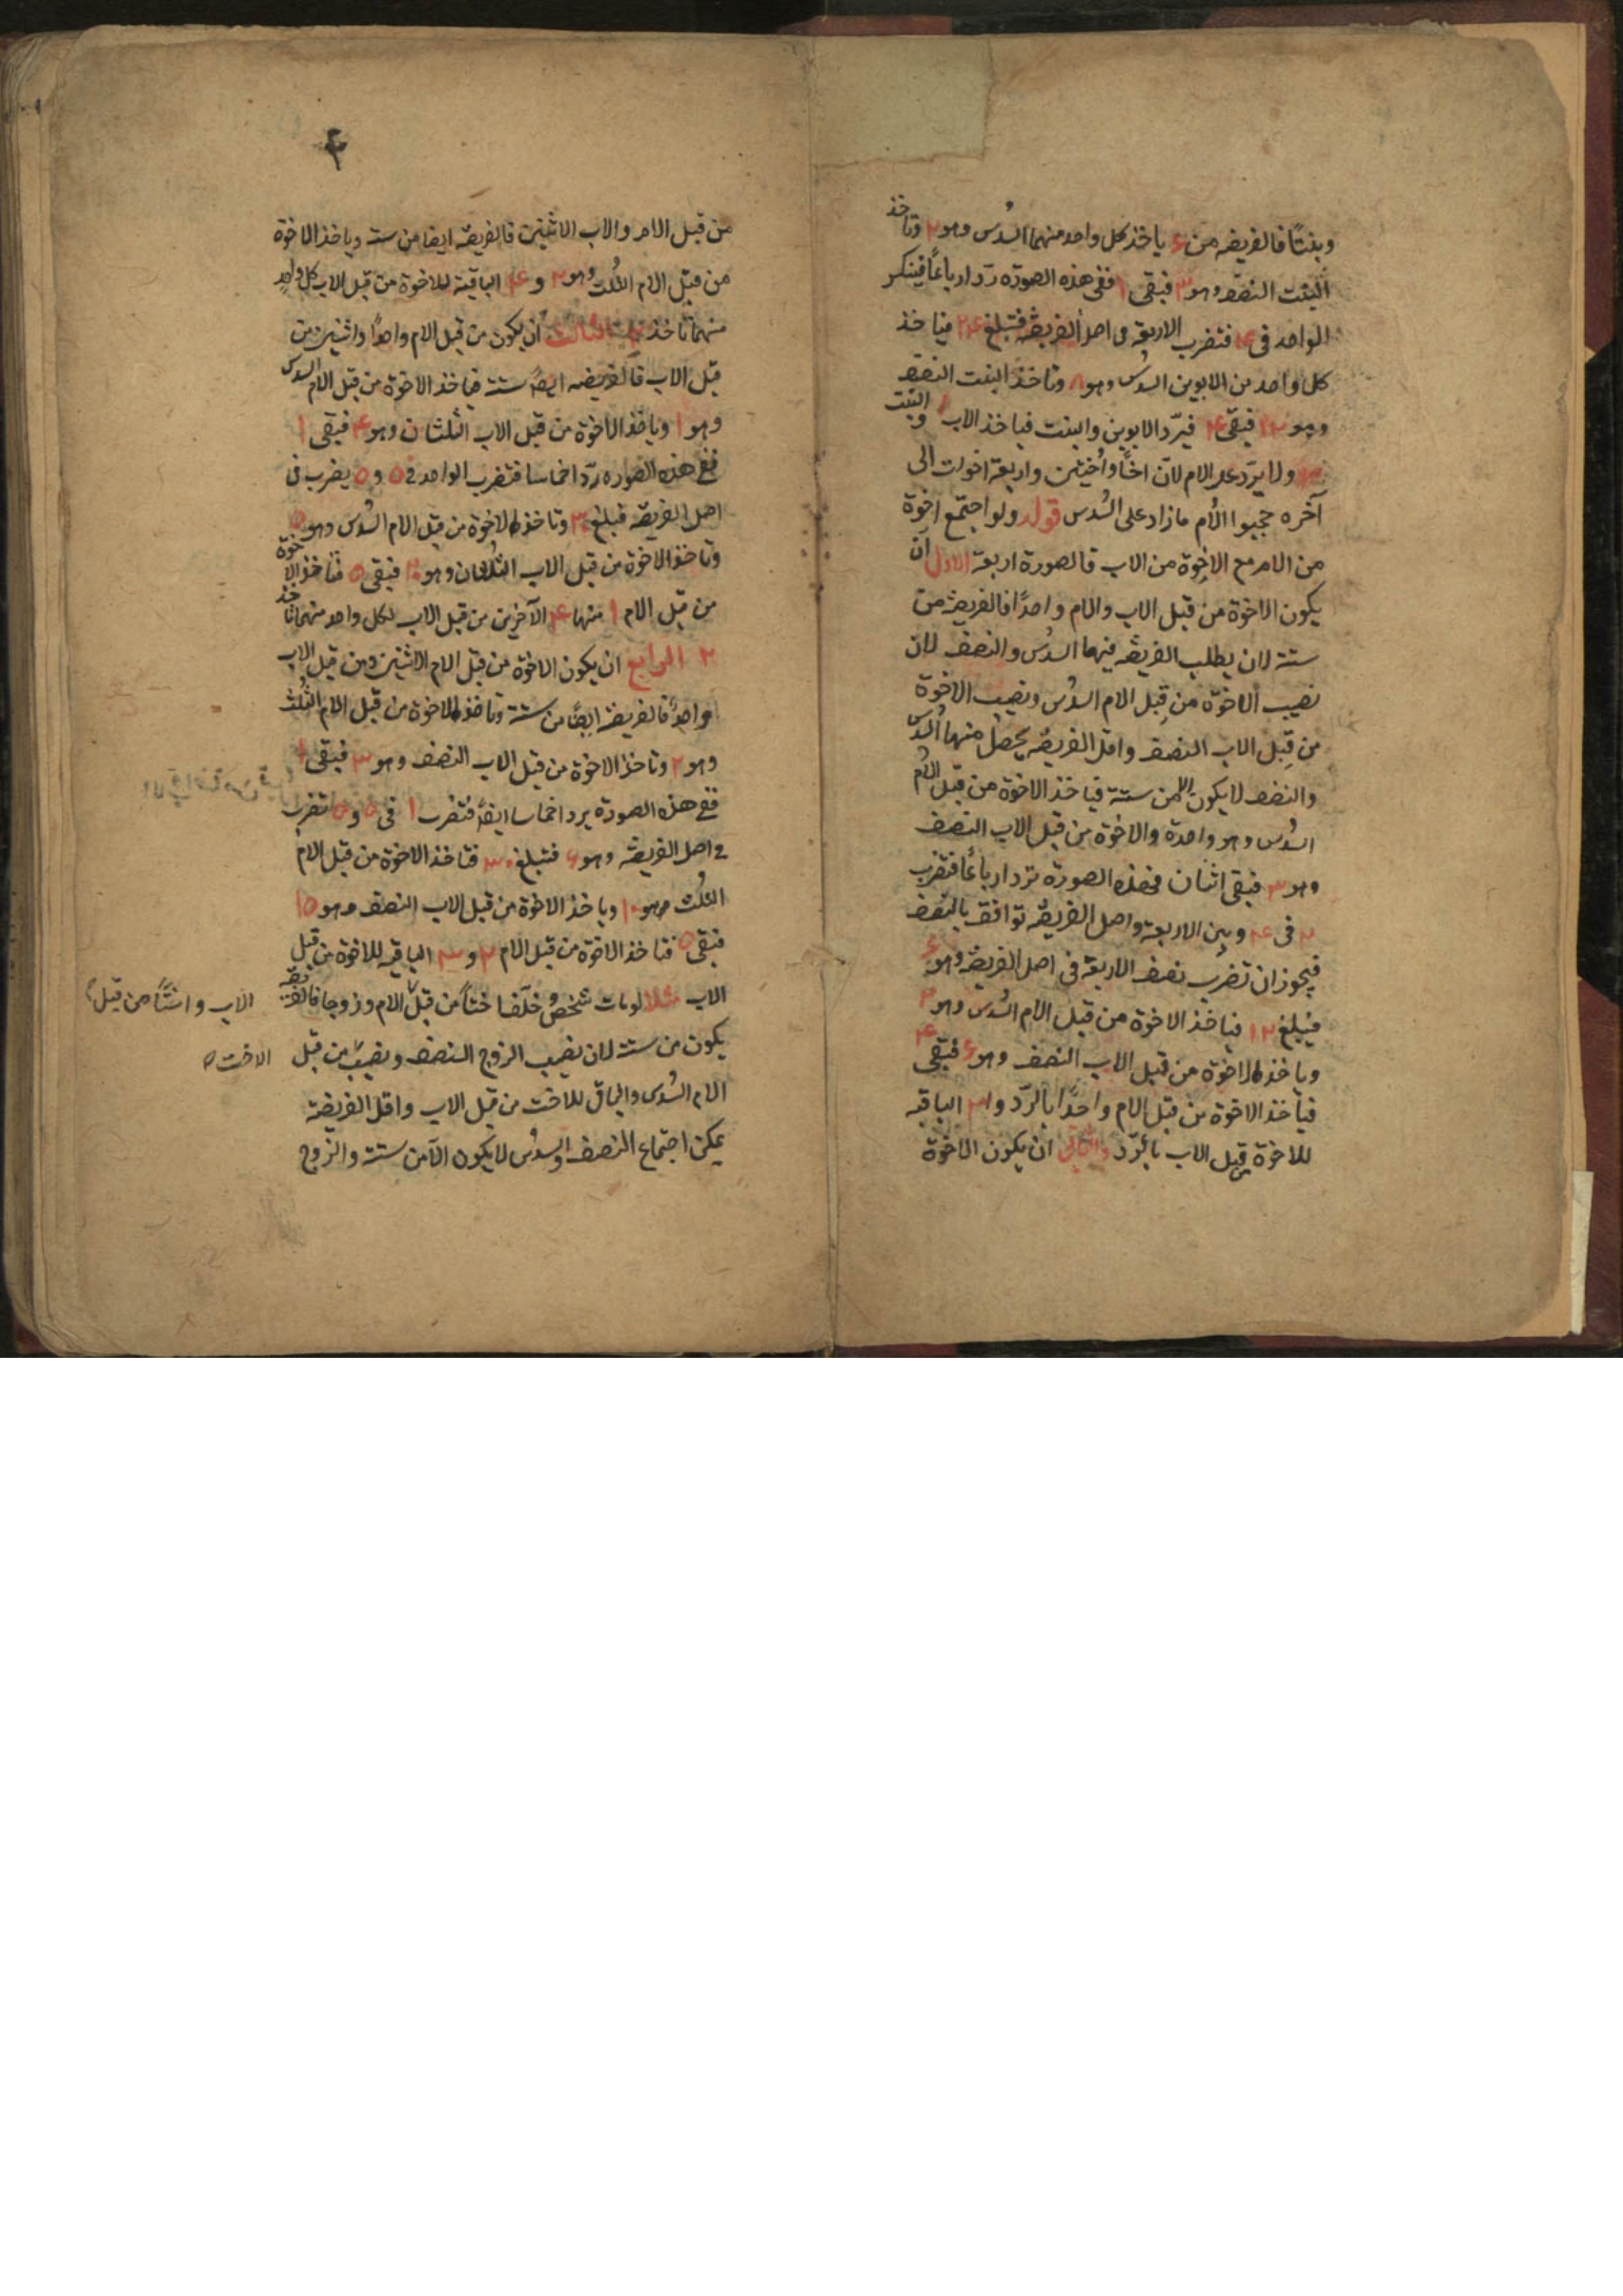 وبنتًا فالفريضه من ۶ ياخذ كل واحد منهما السدس وهو ۲ وتاخذ
البنت النصف وهو ۳ فبقى ۱ ففى هذه الصورة ردّ ارباعًا فينكسر
الواحد فى ۴ فتضرب الاربعة فى اصل الفريضة فتبلغ ۲۴ فياخذ
كل واحد من الابوين السدس وهو ۸ وتاخذ البنت النصف
وهو ۱۲ فبقى ۴ فيردّ الابوين والبنت فياخذ الاب ۱ والبنت
۳ ولا يردّ على الام لانّ اخًا واُختين واربعة اخوات الى
آخره حجبوا الاُم ما زاد على السُدس قوله ولو اجتمع اخوة
من الام مع الاِخوة من الاب فالصورة اربعة الاول ان
يكون الاخوة من قبل الاب والام واحدًا فالفريضة من
ستة لان يطلب الفريضه فيهما السدُس والنصف لان
نصيب الاخوة من قِبل الام السدُس ونصيب الاخوة
من قِبل الاب النصف واقل الفريضة يحصل منها السدس
والنصف لا يكون الا من ستة فياخذ الاخوة من قبل الاُم
السدُس وهو واحدة والاخوة من قبل الاب النصف
وهو ۳ فبقى اثنان فهذه الصورة تردّ ارباعًا فتضرب
۲ فى ۴ وبين الاربعة واصل الفريضة توافق بالنصف
فيجوز ان تضرب نصف الاربعة فى اصل الفريضة وهو ۶
فيبلغ ۱۲ فياخذ الاخوة من قبل الام السُدس وهو ۲
وياخذ الاخوة من قبل الاب النصف وهو ۶ فبقى ۴
فياخذ الاخوة من قبل الام واحدًا بالردّ و۳ الباقيه
للاخوة من قبل الاب بالردّ والثانى ان يكون الاخوة
۴
من قبل الام والاب الاثنين فالفريضة ايضا من ستة وياخذ الاخوة
من قبل الام الثُلث وهو ۲ و ۴ الباقية للاخوة من قبل الاب كل واحدٍ
منهما تاخذ ۲ الثالث ان يكون من قبل الام واحدًا واثنين من
قبل الاب فالفريضه ايضًا ستة فياخذ الاخوة من قبل الام السدس
وهو ۱ وياخذ الاخوة من قبل الاب الثلثان وهو ۴ فبقى ۱
ففى هذه الصوره ردّ اخماسا فتضرب الواحد فى ۵ و ۵ يضرب فى
اصل الفريضة فبلغ ۳۰ وتاخذ الاخوة من قبل الام السُدس وهو ۵
وتاخذ الاخوة من قبل الاب الثلثان وهو ۲۰ فبقى ۵ فتاخذ الاخوة
من قبل الام ۱ منها ۴ الآخرين من قبل الاب لكل واحد منهما تاخذ
۲ الرابع ان يكون الاخوة من قبل الام الاثنين ومن قبل الاب
واحدًا فالفريضة ايضًا من ستة وتاخذ الاخوة من قبل الام الثُلث
وهو ۲ وتاخذ الاخوة من قبل الاب النصف وهو ۳ فبقى ۱
ففى هذه الصورة يردّ اخماسا ايضًا فتضرب ۱ فى ۵ و ۵ تضرب
فى اصل الفريضة وهو ۶ فتبلغ ۳۰ فتاخذ الاخوة من قبل الام
الثلث وهو ۱۰ وياخذ الاخوة من قبل الاب النصف وهو ۱۵
فبقى ۵ فتاخذ الاخوة من قبل الام ۲ و ۳ الباقيه للاخوة من قبل
الاب مثلا لو مات شخصٌ وخلّف اختًا من قبل الام وزوجا فالفريضة
يكون من ستة لان نصيب الزوج النصف ونصيب من قبل
الام السُدس والباقى للاخت من قبل الاب واقل الفريضة
يمكن اجتماع النصف والسدُس لا يكون الّا من ستة والزوج
الاب واختًا من قبل
الاخت ۵